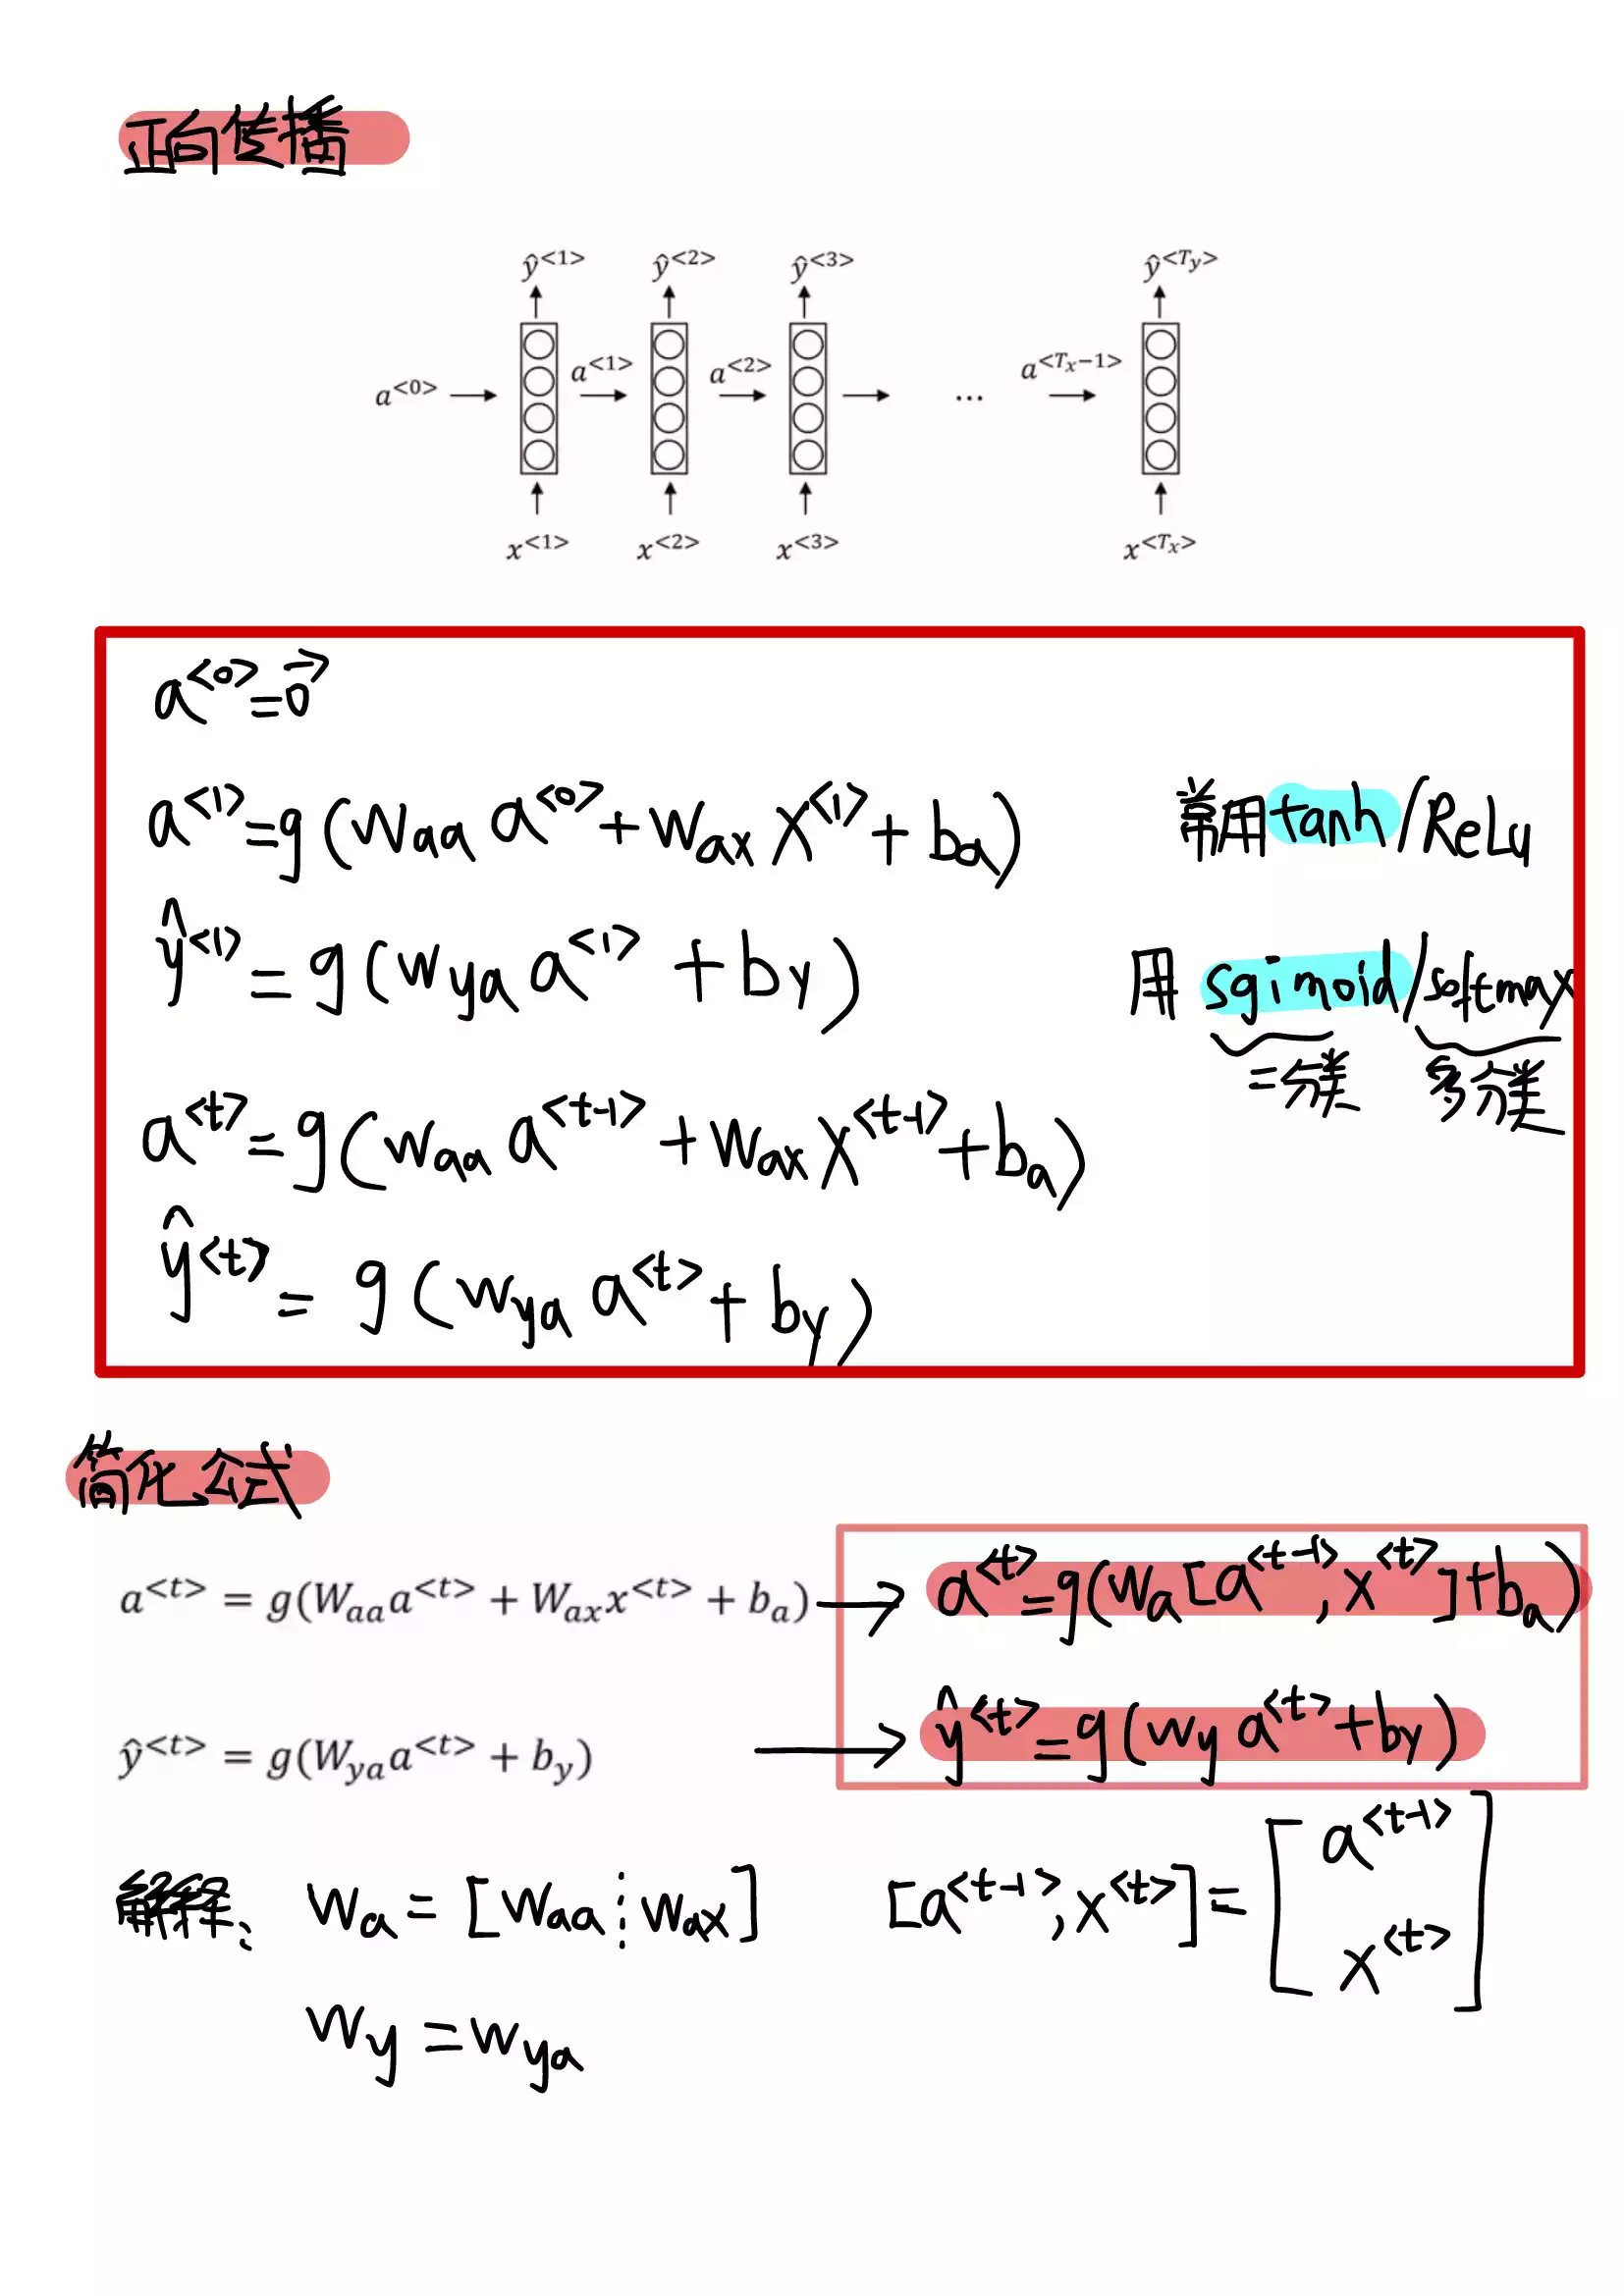 正向传播
ŷ<1> ŷ<2> ŷ<3> ŷ<Ty>
a<0> a<1> a<2> ... a<Tx−1>
x<1> x<2> x<3> x<Tx>
a<0>=0⃗
a<1>=g(Waa a<0>+Wax X<1>+ba) 常用tanh/ReLu
ŷ<1>=g(Wya a<1>+by) 用sgimoid/softmax
二分类 多分类
a<t>=g(Waa a<t-1>+Wax X<t-1>+ba)
ŷ<t>=g(Wya a<t>+by)
简化公式
a<t> = g(Waa a<t> + Wax x<t> + ba) → a<t>=g(Wa[a<t-1>,x<t>]+ba)
ŷ<t> = g(Wya a<t> + by) → ŷ<t>=g(Wy a<t>+by)
解释: Wa=[Waa⋮Wax] [a<t-1>,x<t>]=[a<t-1> x<t>]
Wy=Wya